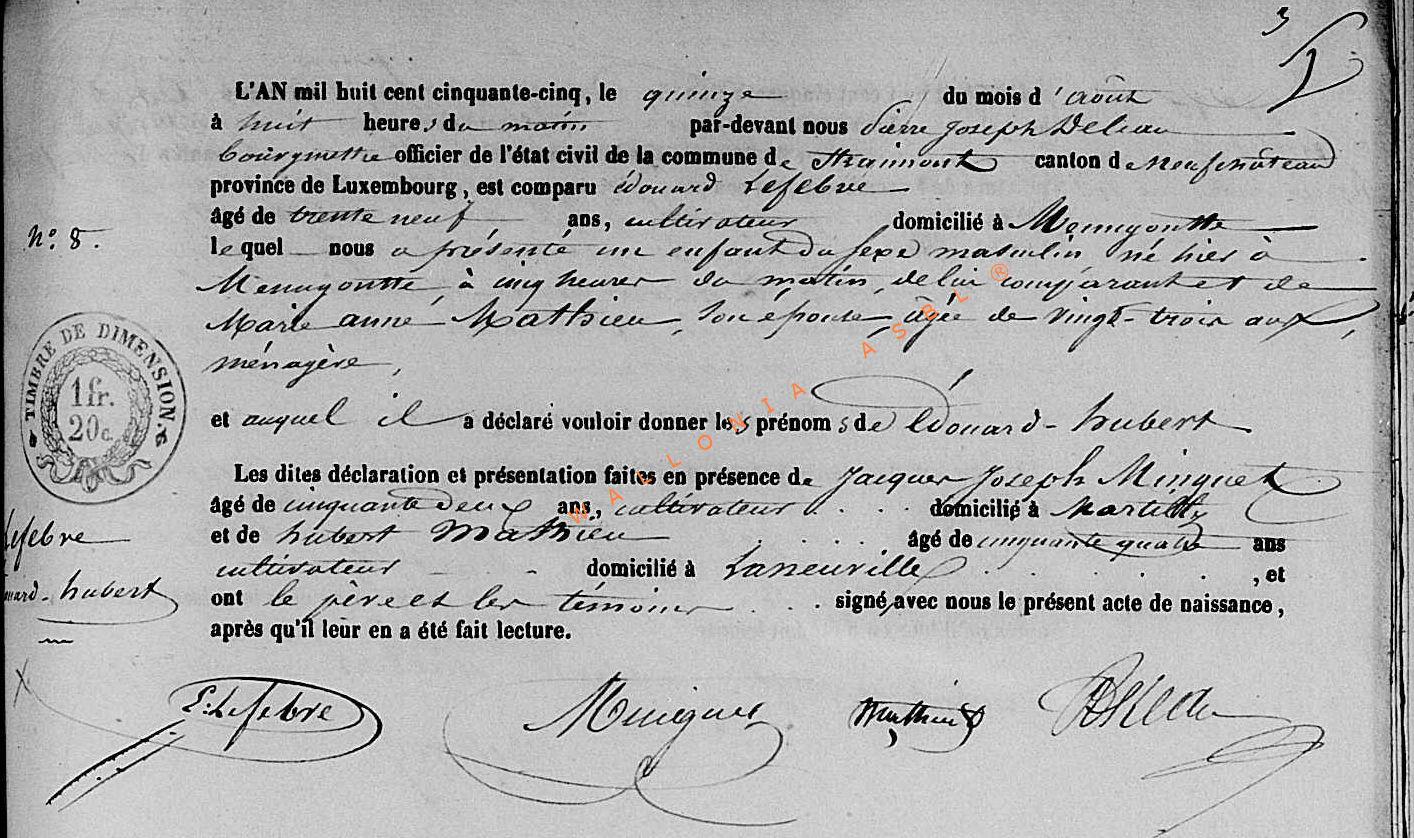 3
L'AN mil huit cent cinquante-cinq, le quinze du mois d'août
à huit heures du matin par-devant nous Pierre Joseph Deleau
bourgmestre officier de l'état civil de la commune de Straimont canton de Neufchâteau
province de Luxembourg, est comparu édouard Lefebvre
âgé de trente neuf ans, cultivateur domicilié à Menugoutte
N.º 8.
lequel nous a présenté un enfant du sexe masculin né hier à
Menugoutte à cinq heures du matin, de lui comparant et de
Marie anne Mathieu, son épouse, âgée de vingt-trois ans,
ménagère,
TIMBRE DE DIMENSION.
1 fr.
20 c.
et auquel il a déclaré vouloir donner les prénoms de Edouard-hubert
Les dites déclaration et présentation faites en présence de Jacques Joseph Minguet
âgé de cinquante deux ans, cultivateur domicilié à Martilly
et de hubert Mathieu âgé de cinquante quatre ans
cultivateur domicilié à Laneuville, et
ont le père et les témoins signé, avec nous le présent acte de naissance,
après qu'il leur en a été fait lecture.
Lefebre
ouard-hubert
E. Lefebre Minguet Mathieu Deleau
WALLONIA ASBL ®